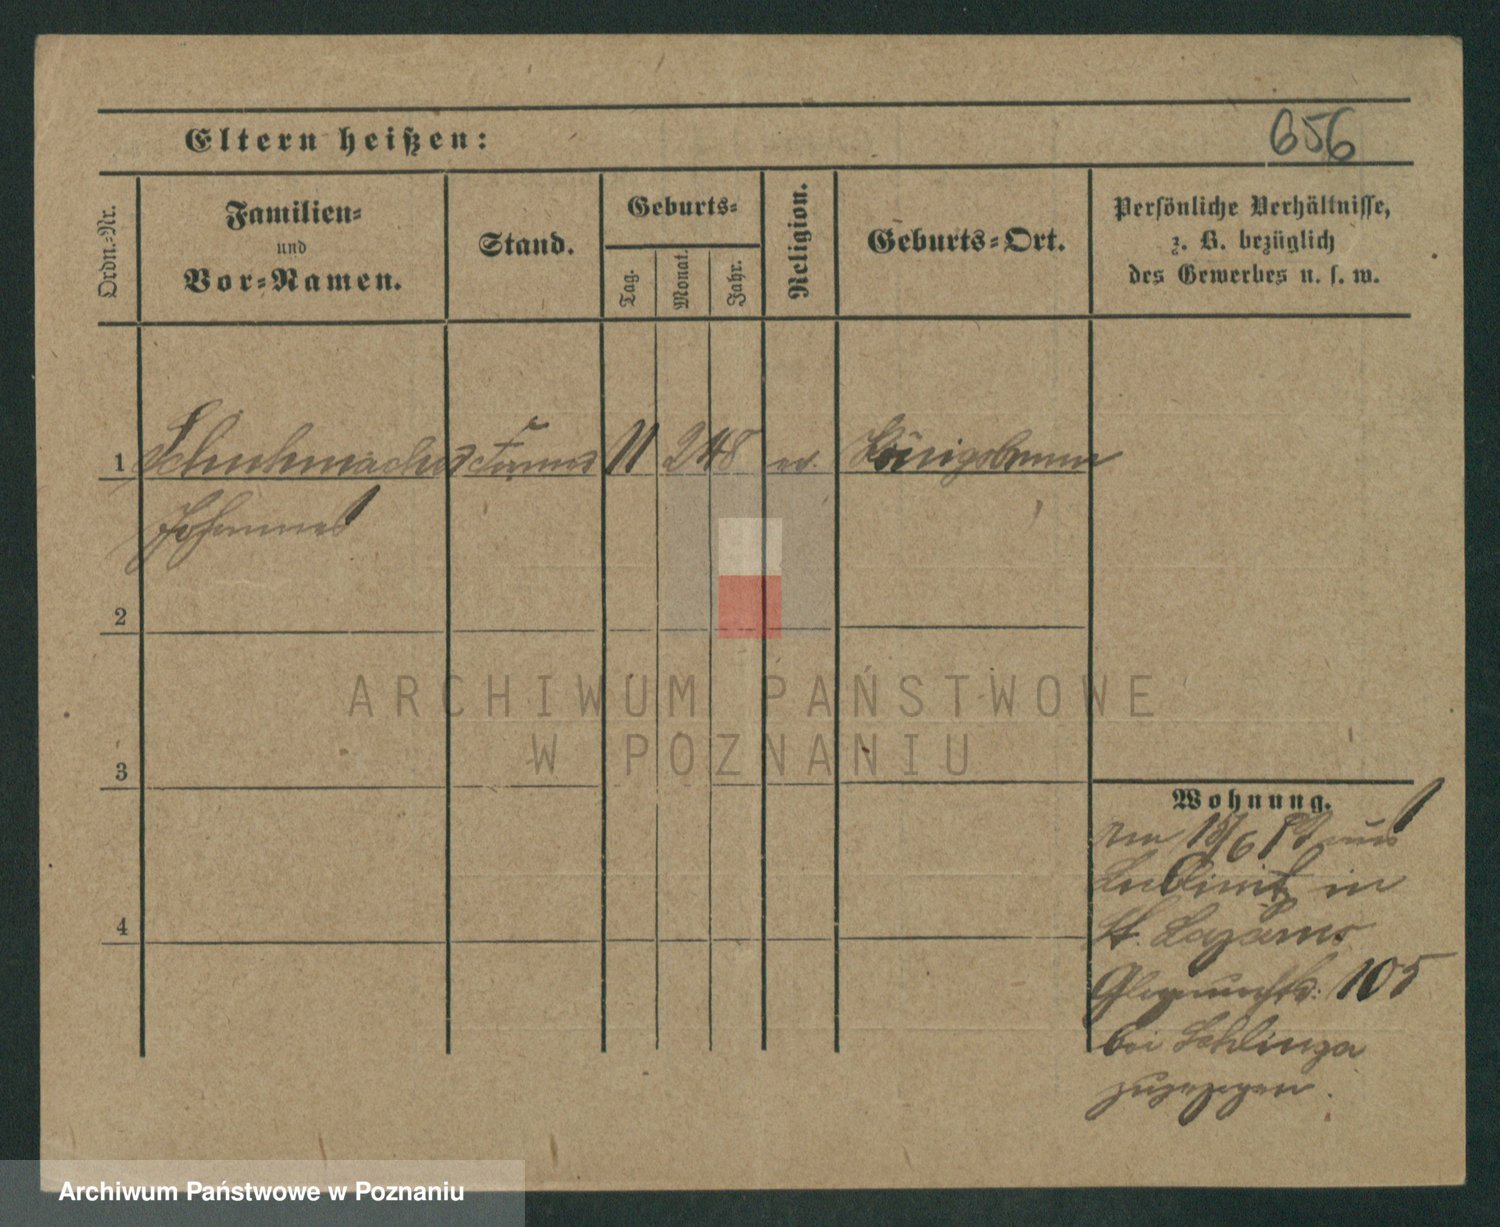 656
Eltern heißen:
Ordn.-Nr.
Familien-
und
Vor-Namen.
Stand.
Geburts-
Tag.
Monat.
Jahr.
Religion.
Geburts-Ort.
Persönliche Verhältnisse,
z. B. bezüglich
des Gewerbes u. s. w.
1 Schuhmacher 11 2 48 Königsbrunn
Johannes
2
3
4
Wohnung.
Am 18/6 aus
in
St. Lazarus
105
bei
zugezogen.
ARCHIWUM PAŃSTWOWE
W POZNANIU
Archiwum Państwowe w Poznaniu